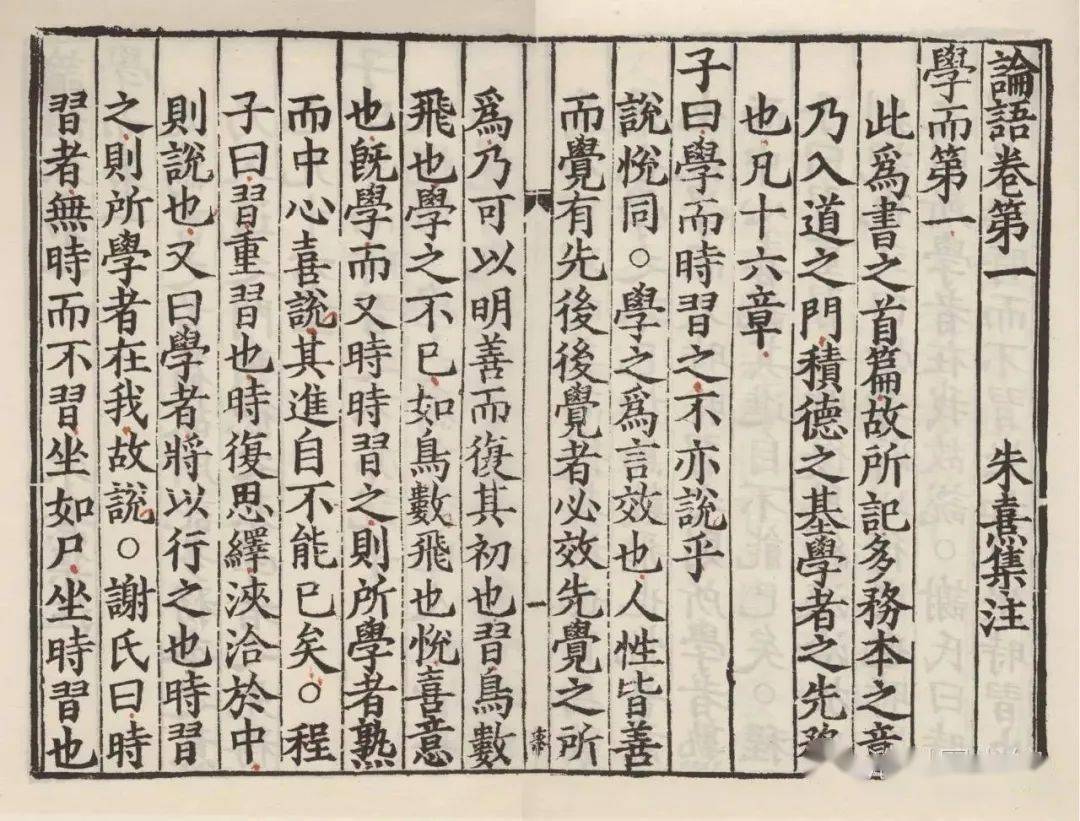 論語卷第一 朱熹集注
學而第一
此爲書之首篇故所記多務本之意
乃入道之門積德之基學者之先務
也凡十六章
子曰學而時習之不亦說乎
說悅同○學之爲言效也人性皆善
而覺有先後後覺者必效先覺之所
一
爲乃可以明善而復其初也習鳥數
飛也學之不已如鳥數飛也悅喜意
也旣學而又時時習之則所學者熟
而中心喜說其進自不能已矣○程
子曰習重習也時復思繹浹洽於中
則說也又曰學者將以行之也時習
之則所學者在我故說○謝氏曰時
習者無時而不習坐如尸坐時習也